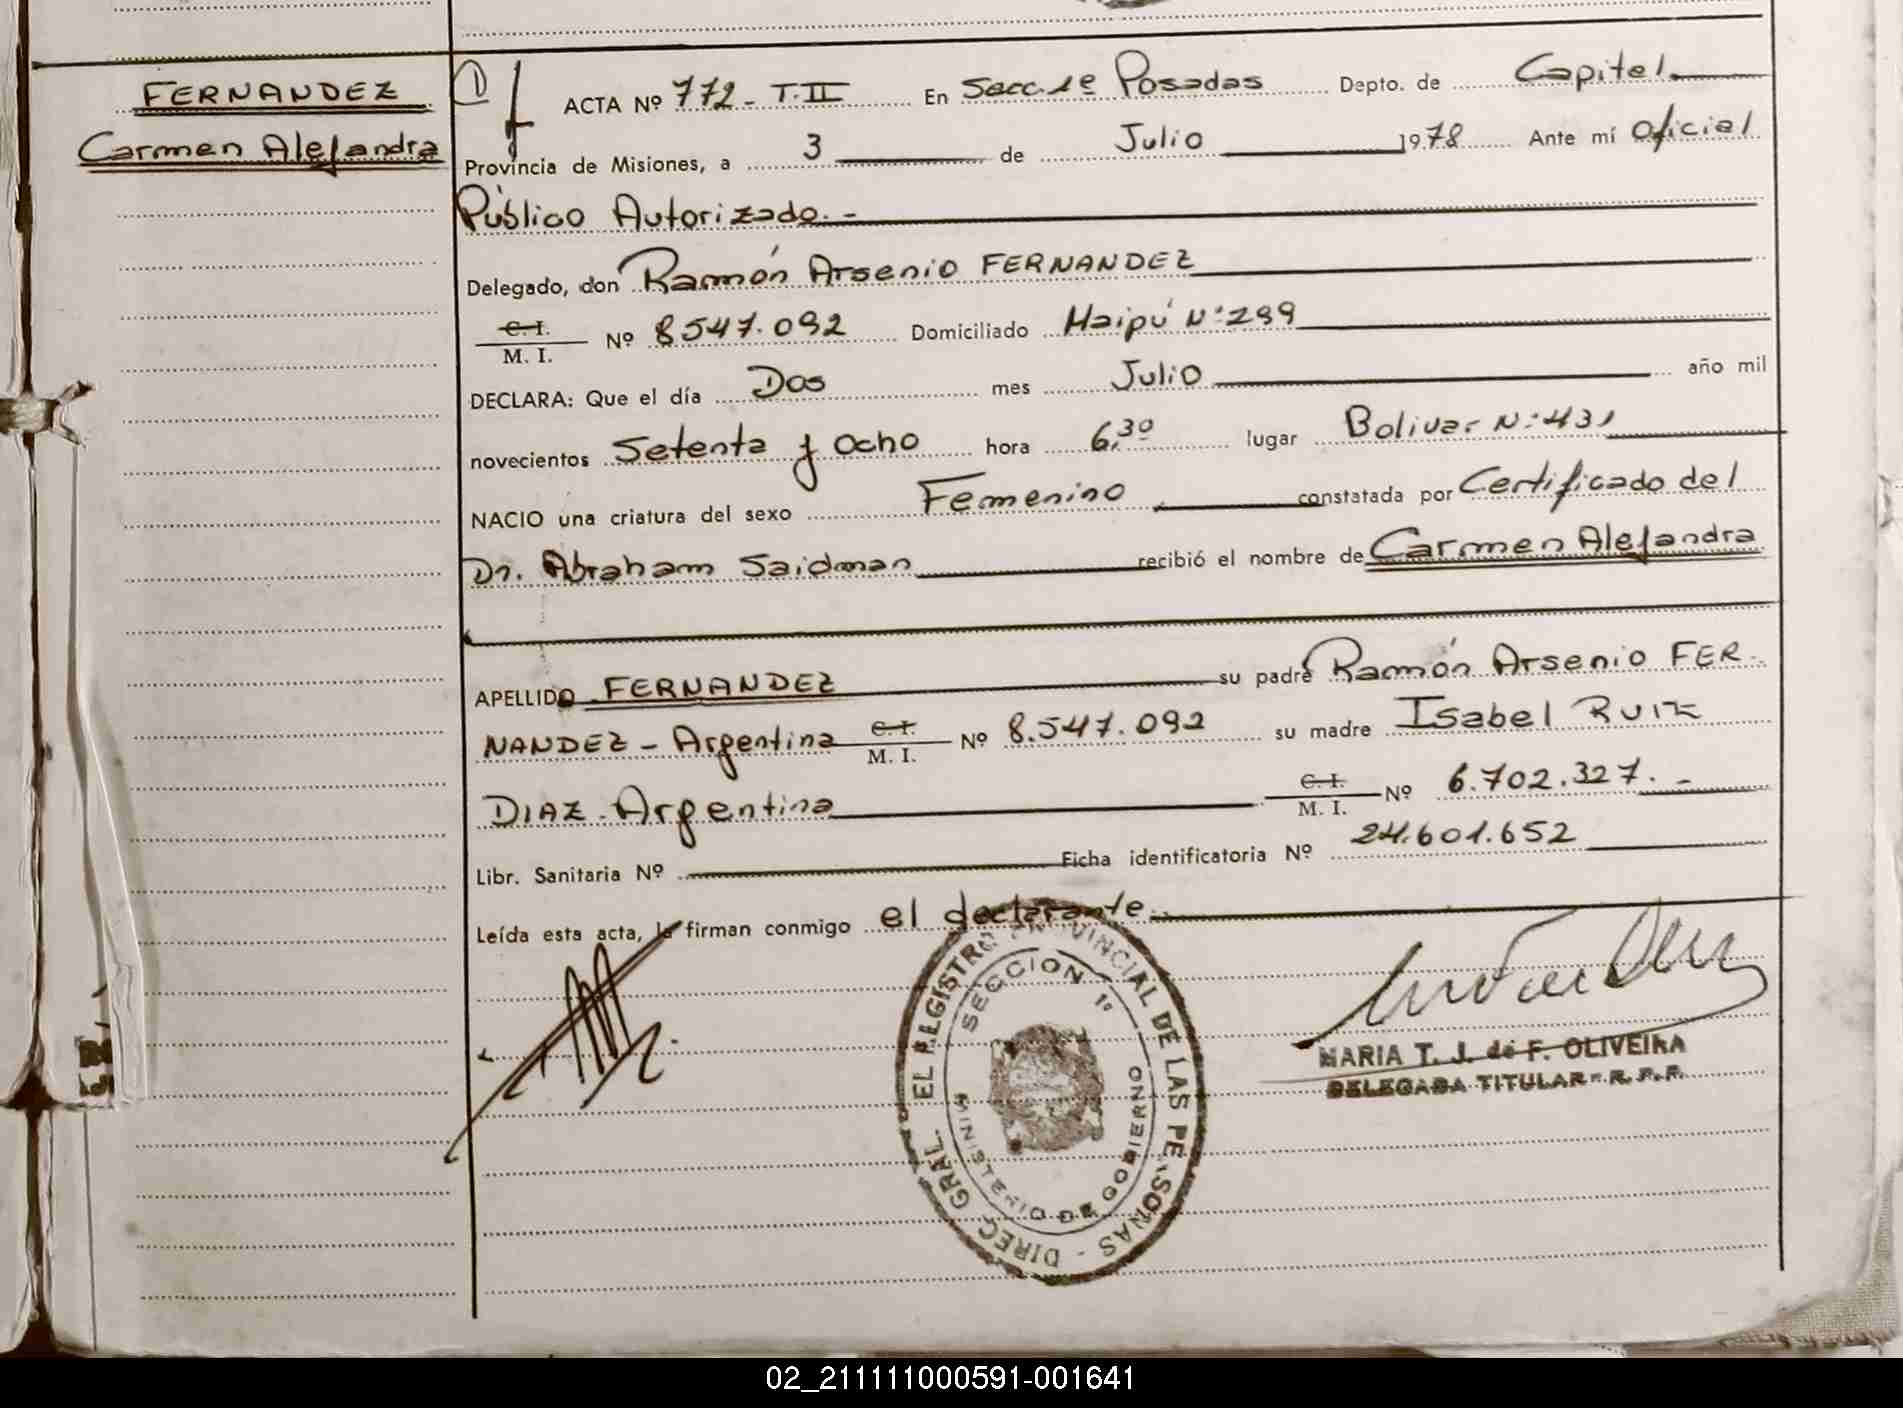 FERNANDEZ
Carmen Alejandra
① ACTA Nº 772 - T. II En Secc. 1º Posadas Depto. de Capital
Provincia de Misiones, a 3 de Julio 1978 Ante mí Oficial
Público Autorizado. -
Delegado, don Ramón Arsenio FERNANDEZ
C. I.
M. I. Nº 8547.092 Domiciliado Maipú Nº: 299
DECLARA: Que el día Dos mes Julio año mil
novecientos Setenta y Ocho hora 6,30 lugar Bolivar Nº: 431
NACIO una criatura del sexo Femenino constatada por Certificado del
Dr. Abraham Saidman recibió el nombre de Carmen Alejandra
APELLIDO FERNANDEZ su padre Ramón Arsenio FER-
NANDEZ - Argentina C. I. M. I. Nº 8.547.092 su madre Isabel RUIZ
DIAZ - Argentina C. I. M. I. Nº 6.702.327. -
Libr. Sanitaria Nº Ficha identificatoria Nº 24.601.652
Leída esta acta, la firman conmigo el declarante.
DIREC. GRAL. EL REGISTRO PROVINCIAL DE LAS PERSONAS -
SECCION 1º
MINISTERIO DE GOBIERNO
MARIA T. J. de F. OLIVEIRA
DELEGADA TITULAR - R. P. P.
02_211111000591-001641